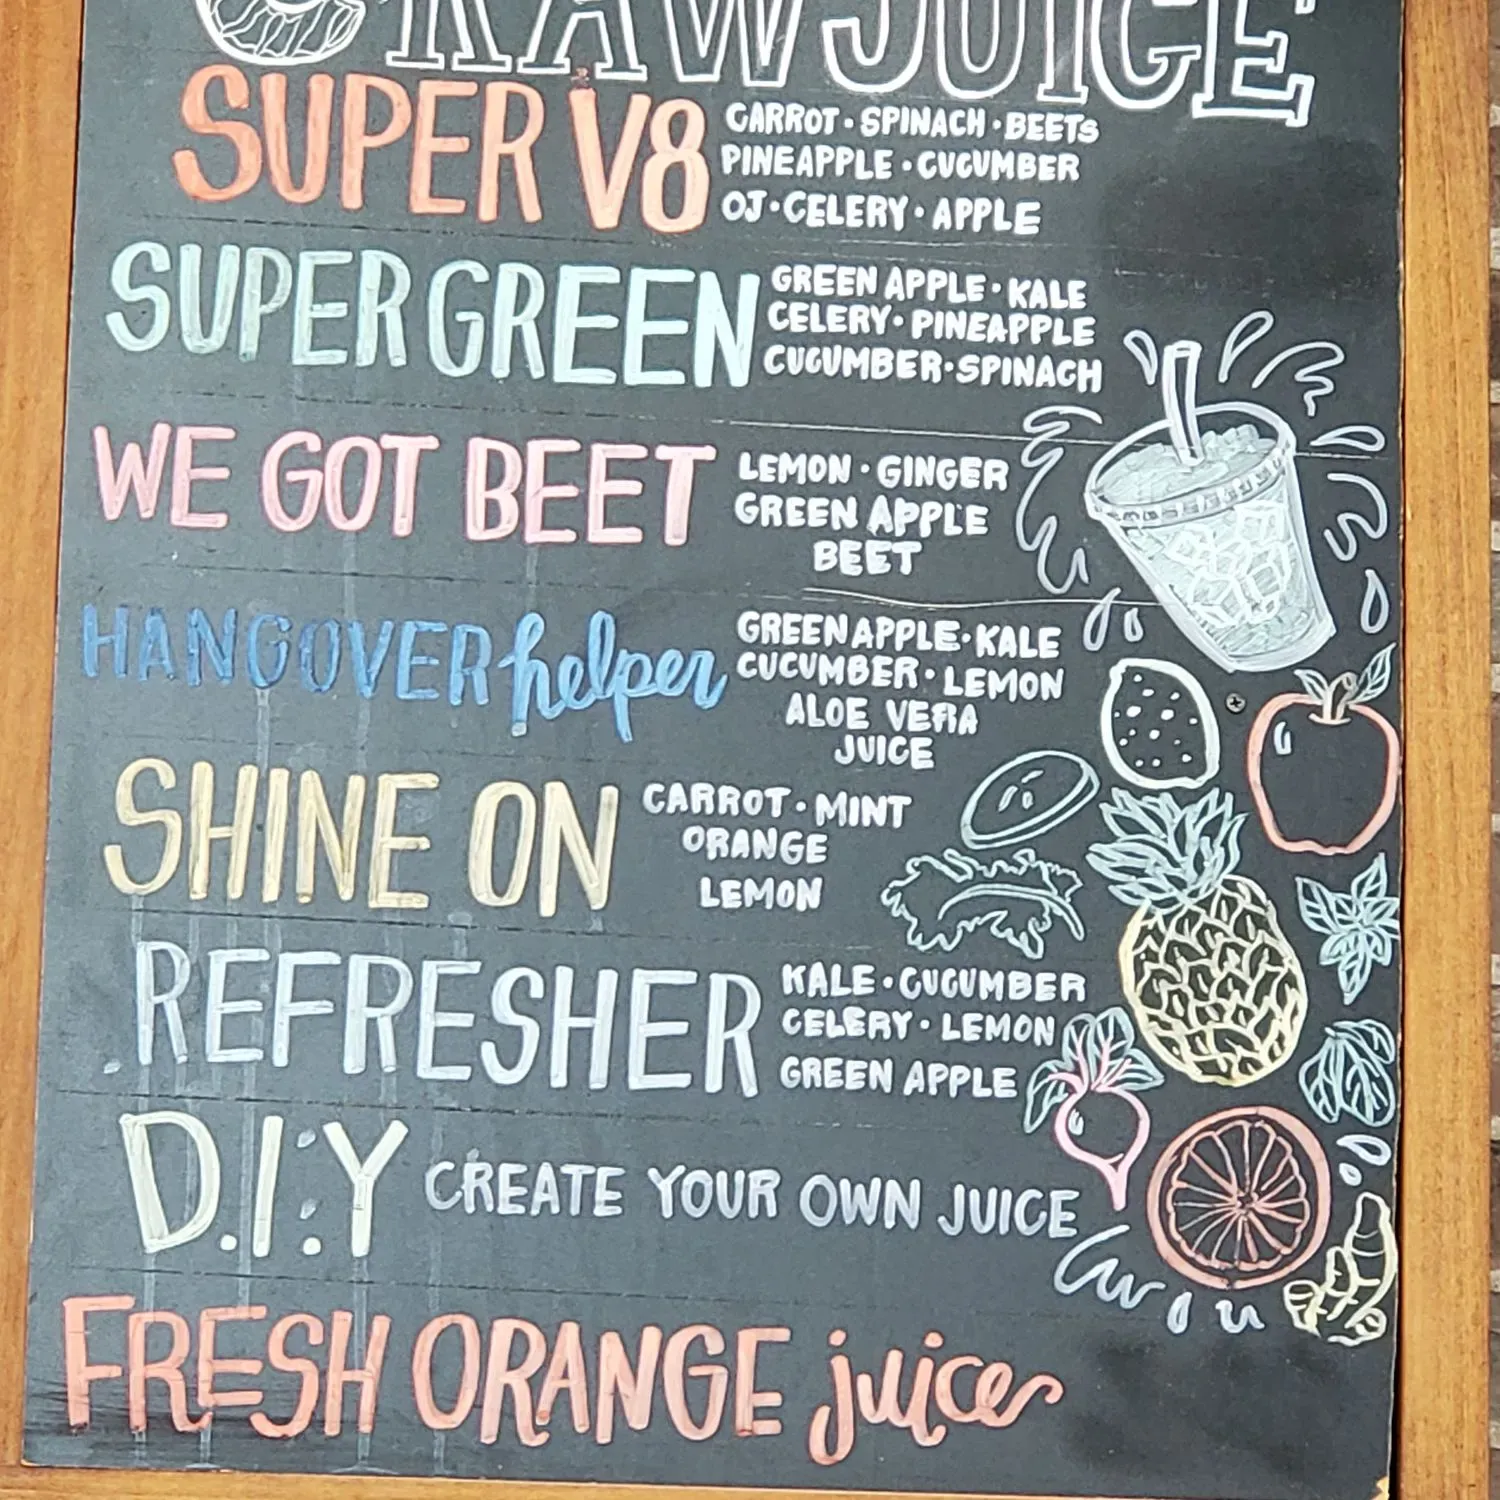 RAW JUICE
SUPER V8
CARROT · SPINACH · BEETS
PINEAPPLE · CUCUMBER
OJ · CELERY · APPLE
SUPER GREEN
GREEN APPLE · KALE
CELERY · PINEAPPLE
CUCUMBER · SPINACH
WE GOT BEET
LEMON · GINGER
GREEN APPLE
BEET
HANGOVER helper
GREEN APPLE · KALE
CUCUMBER · LEMON
ALOE VERA
JUICE
SHINE ON
CARROT · MINT
ORANGE
LEMON
REFRESHER
KALE · CUCUMBER
CELERY · LEMON
GREEN APPLE
D.I.Y CREATE YOUR OWN JUICE
FRESH ORANGE juice